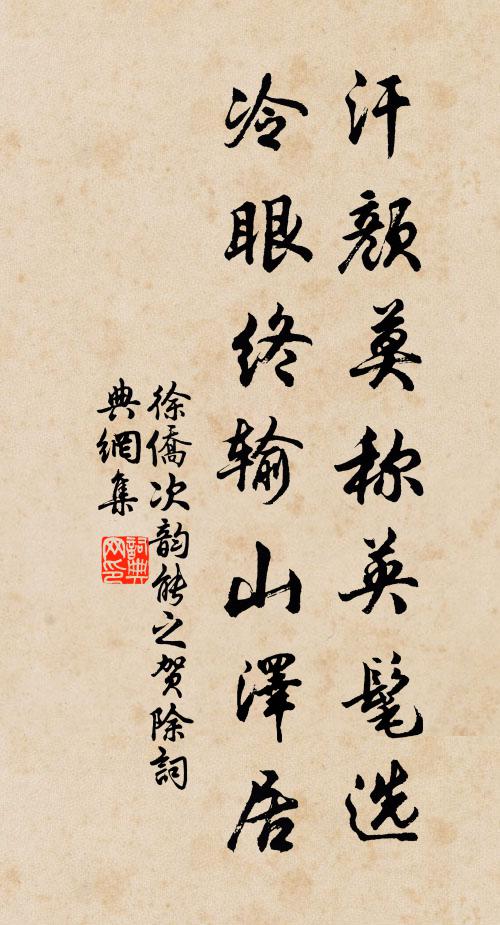 汗颜莫称英髦选
冷眼终输山澤居
徐僑次韵能之贺除詞
典網集
詞典网印